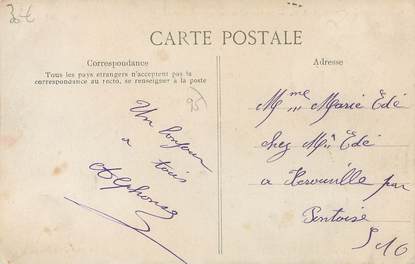 3€
CARTE POSTALE
Correspondance
Tous les pays étrangers n'acceptent pas la
correspondance au recto, se renseigner à la poste
95
Un bonjour
a tous
Alphonse
Adresse
Mme Marie Edé
chez Mr Edé
a Herouville par
Pontoise
S et O